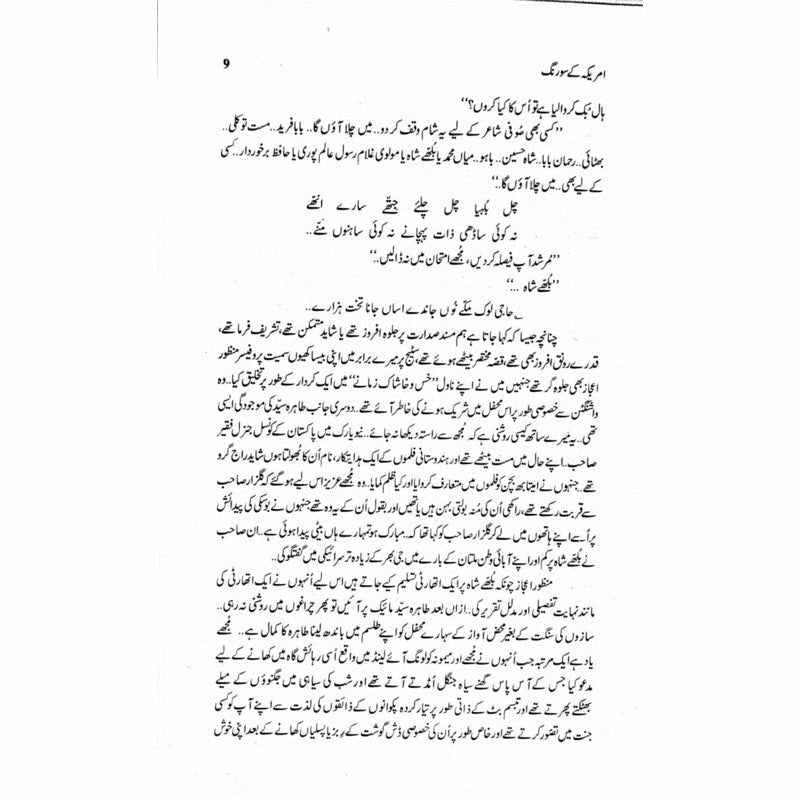 امریکہ کے سو رنگ
9
ہال بُک کروا لیا ہے تو اُس کا کیا کروں؟‘‘
’’کسی بھی صُوفی شاعر کے لیے یہ شام وقف کر دو.. میں چلا آؤں گا.. بابا فرید.. مست توکلی..
بھٹائی.. رحمان بابا.. شاہ حسین.. باہو.. میاں محمد یا بُلّھے شاہ یا مولوی غلام رسول عالم پوری یا حافظ برخوردار.. کسی
کے لیے بھی.. میں چلا آؤں گا..‘‘
چل بُلھیا چل چلئے جتھّے سارے انھّے
نہ کوئی ساڈھی ذات پچھانے نہ کوئی ساہنوں منّے..
’’مُرشد آپ فیصلہ کر دیں، مُجھے امتحان میں نہ ڈالیں..‘‘
’’بُلّھے شاہ...‘‘
؎ حاجی لوک مکّے نُوں جاندے اساں جانا تخت ہزارے..
چنانچہ جیسا کہ کہا جاتا ہے ہم مسندِ صدارت پر جلوہ افروز تھے یا شاید متمکن تھے، تشریف فرما تھے،
قدرے رونق افروز بھی تھے، قصہ مختصر بیٹھے ہوئے تھے، سٹیج پر میرے برابر میں اپنی بیساکھیوں سمیت پروفیسر منظور
اعجاز بھی جلوہ گر تھے جنہیں میں نے اپنے ناول ’’خس و خاشاک زمانے‘‘ میں ایک کردار کے طور پر تخلیق کیا.. وہ
واشنگٹن سے خصوصی طور پر اس محفل میں شریک ہونے کی خاطر آئے تھے.. دوسری جانب طاہرہ سیّد کی موجودگی ایسی
تھی.. یہ میرے ساتھ کیسی روشنی ہے کہ مُجھ سے راستہ دیکھا نہ جائے.. نیویارک میں پاکستان کے کونسل جنرل فقیر
صاحب.. اپنے حال میں مست بیٹھے تھے اور ہندوستانی فلموں کے ایک ہدایتکار، نام اُن کا بُھولتا ہوں شاید راج گرو
تھے.. جنہوں نے امیتابھ بچن کو فلموں میں متعارف کروایا اور کیا ظلم کمایا.. وہ مُجھے عزیز اس لیے ہو گئے کہ گلزار صاحب
سے قربت رکھتے تھے، راکھی اُن کی مُنہ بولتی بہن ہیں یا تھیں اور بقول اُن کے یہ وہ تھے جنہوں نے بوسکی کی پیدائش
پر اُسے اپنے ہاتھوں میں لے کر گلزار صاحب کو کہا تھا کہ.. مبارک ہو تمہارے ہاں بیٹی پیدا ہوئی ہے.. ان صاحب
نے بُلّھے شاہ پر کم اور اپنے آبائی وطن ملتان کے بارے میں جی بھر کے زیادہ تر سرائیکی میں گفتگو کی..
منظور اعجاز چونکہ بُلّھے شاہ پر ایک اتھارٹی تسلیم کیے جاتے ہیں اس لیے اُنہوں نے ایک اتھارٹی کی
مانند نہایت تفصیلی اور مدلل تقریر کی.. ازاں بعد طاہرہ سیّد مائیک پر آئیں تو پھر چراغوں میں روشنی نہ رہی..
سازوں کی سنگت کے بغیر محض آواز کے سہارے محفل کو اپنے طلسم میں باندھ لینا طاہرہ کا کمال ہے.. مُجھے
یاد ہے ایک مرتبہ جب اُنہوں نے مُجھے اور میمونہ کو لونگ آئے لینڈ میں واقع اُسی رہائش گاہ میں کھانے کے لیے
مدعو کیا جس کے آس پاس گھنے سیاہ جنگل اُمڈتے آتے تھے اور شب کی سیاہی میں جگنوؤں کے میلے
بھٹکتے پھرتے تھے اور تبسم بٹ کے ذاتی طور پر تیار کردہ پکوانوں کے ذائقوں کی لذت سے اپنے آپ کو کسی
جنت میں تصّور کرتے تھے اور خاص طور پر اُن کی خصوصی ڈش گوشت کے رِبز یا پسلیاں کھانے کے بعد اپنی خوش